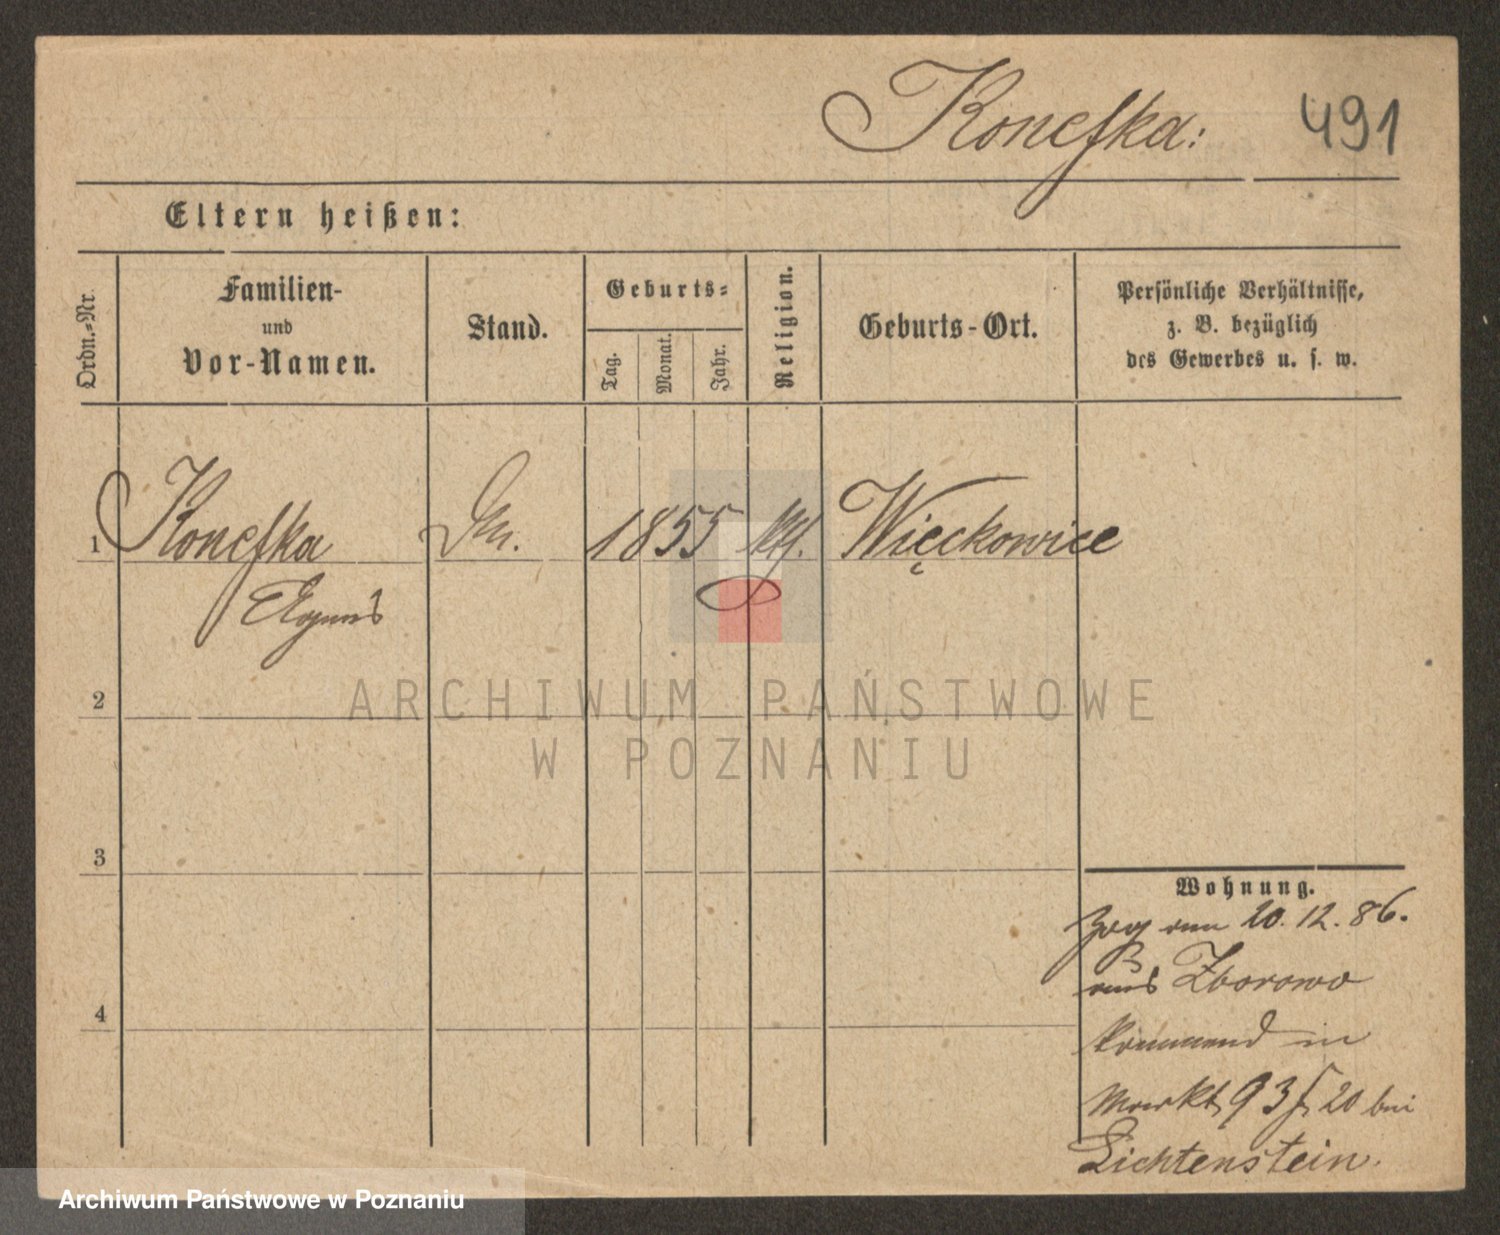 Konefka:
491
Eltern heißen:
Ordn.=Nr.
Familien-
und
Vor-Namen.
Stand.
Geburts=
Tag.
Monat.
Jahr.
Religion.
Geburts-Ort.
Persönliche Verhältnisse,
z. B. bezüglich
des Gewerbes u. s. w.
1
Konefka
1855
Więckowice
Agnes
2
ARCHIWUM PAŃSTWOWE
W POZNANIU
3
Wohnung.
Zog am 20.12.86.
aus Zborowo
kommend in
Markt 93 20 bei
4
Lichtenstein.
Archiwum Państwowe w Poznaniu